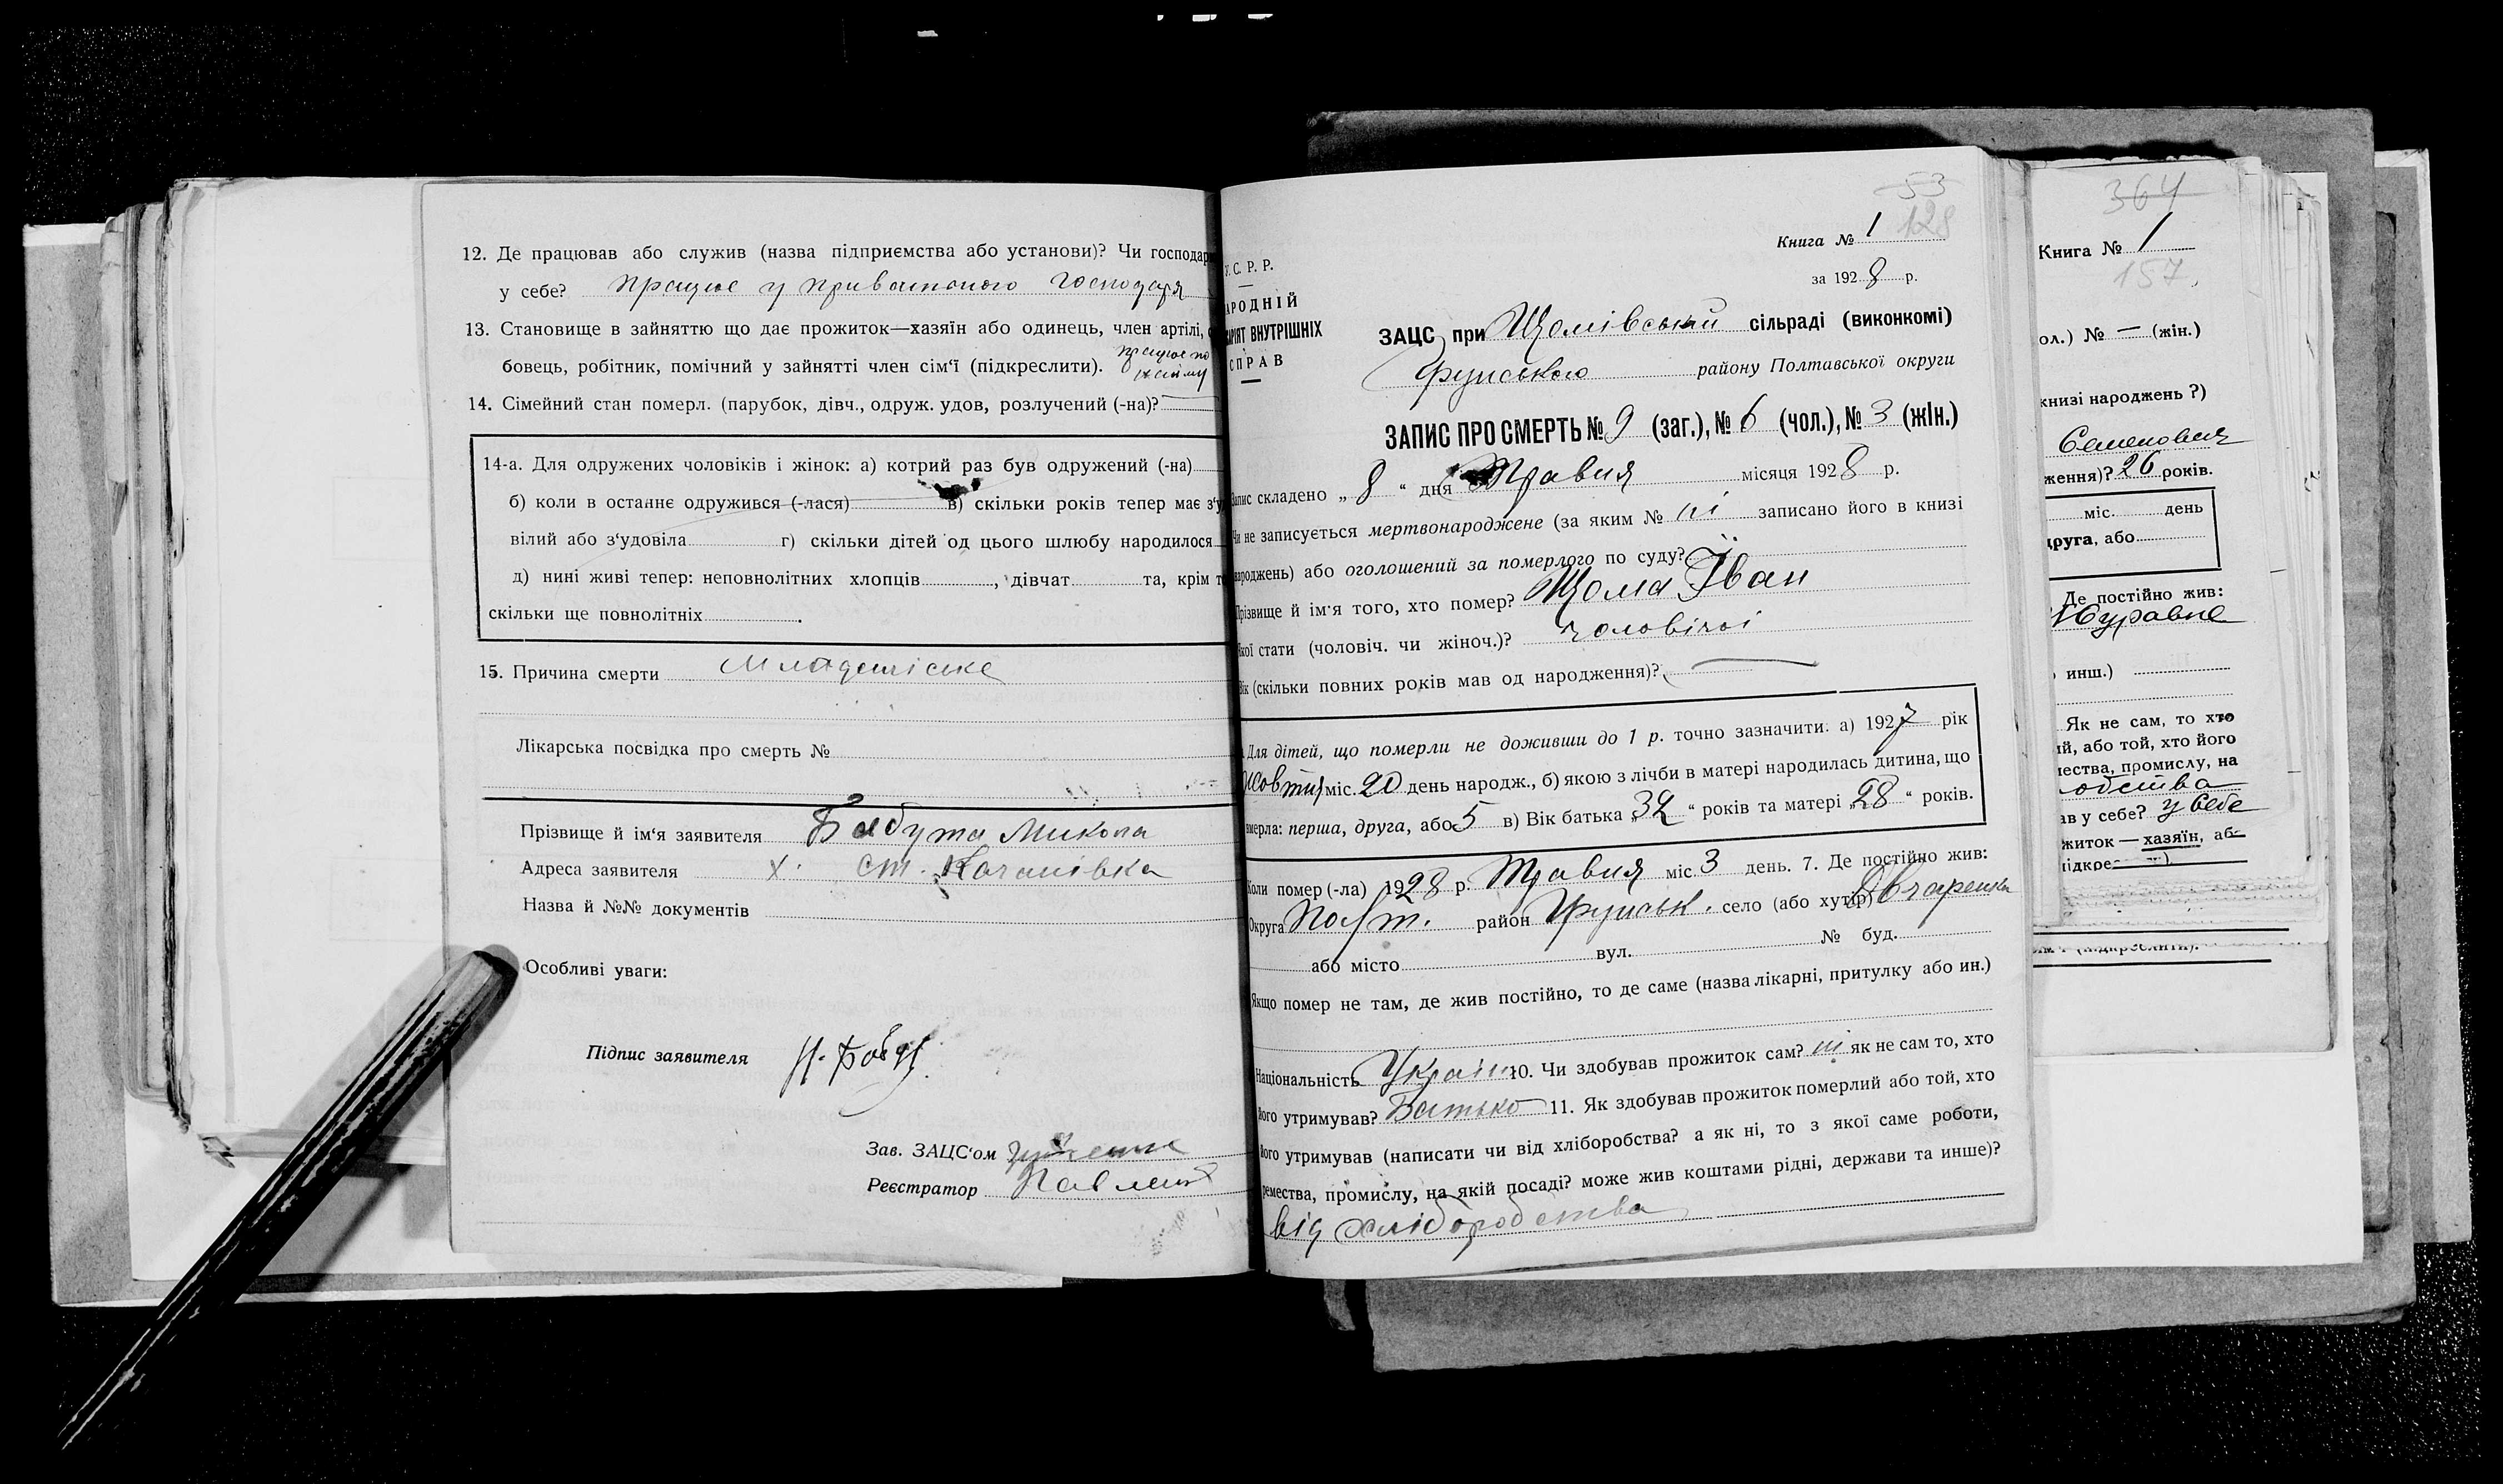 12. Де працював або служив (назва підприємства або установи)? Чи господар
у себе? працює у приватного господаря
13. Становище в зайняттю що дає прожиток—хазяїн або одинець, член артілі,
працює по
бовець, робітник, помічний у зайнятті член сім‘ї (підкреслити). найму
14. Сімейний стан померл. (парубок, дівч., одруж. удов, розлучений (-на)?
14-а. Для одружених чоловіків і жінок: а) котрий раз був одружений (-на)
б) коли в останнє одружився (-лася) в) скільки років тепер має з‘у
вілий або з‘удовіла г) скільки дітей од цього шлюбу народилося
д) нині живі тепер: неповнолітних хлопців , дівчат та, крім т
скільки ще повнолітніх .
15. Причина смерти Младеніське
Лікарська посвідка про смерть №
Прізвище й ім‘я заявителя Бабута Микола
Адреса заявителя х. ст. Качанівка
Назва й №№ документів
Особливі уваги:
Підпис заявителя
Зав. ЗАЦС‘ом
Реєстратор Павленко
53
128
Книга № 1
за 1928 р.
У. С. Р. Р.
АРОДНІЙ
АРІЯТ ВНУТРІШНІХ
СПРАВ
ЗАЦС при Щомівській сільраді (виконкомі)
Грунського району Полтавської округи
ЗАПИС ПРО СМЕРТЬ № 9 (заг.), № 6 (чол.), № 3 (жін.)
Запис складено „ 8 “ дня Травня місяця 1928 р.
Чи не записується мертвонароджене (за яким № ні записано його в книзі
народжень) або оголошений за померлого по суду?
Прізвище й ім‘я того, хто помер? Щома Іван
Якої стати (чоловіч. чи жіноч.)? чоловічої
Вік (скільки повних років мав од народження)? —
Для дітей, що померли не доживши до 1 р. точно зазначити: а) 1927 рік
Жовтня міс. 20 день народж., б) якою з лічби в матері народилась дитина, що
вмерла: перша, друга, або 5 в) Вік батька „32 “ років та матері „28 “ років.
Коли помер (-ла) 1928 р. Травня міс 3 день. 7. Де постійно жив:
Округа Полт. район Грунськ. село (або хутір)
або місто вул. № буд.
Якщо помер не там, де жив постійно, то де саме (назва лікарні, притулку або ин.)
Національність Україн. 10. Чи здобував прожиток сам? ні як не сам то, хто
його утримував? Батько 11. Як здобував прожиток померлий або той, хто
його утримував (написати чи від хліборобства? а як ні, то з якої саме роботи,
ремества, промислу, на якій посаді? може жив коштами рідні, держави та инше)?
від хліборобства
364
Книга № 1
157
ол.) № — (жін.)
книзі народжень ?)
Семенович
ження)? 26 років.
міс. день
друга, або
Де постійно жив:
Журавне
инш.)
Як не сам, то хто
ий, або той, хто його
мества, промислу, на
обства
ав у себе? у себе
житок — хазяїн, аб
підкре